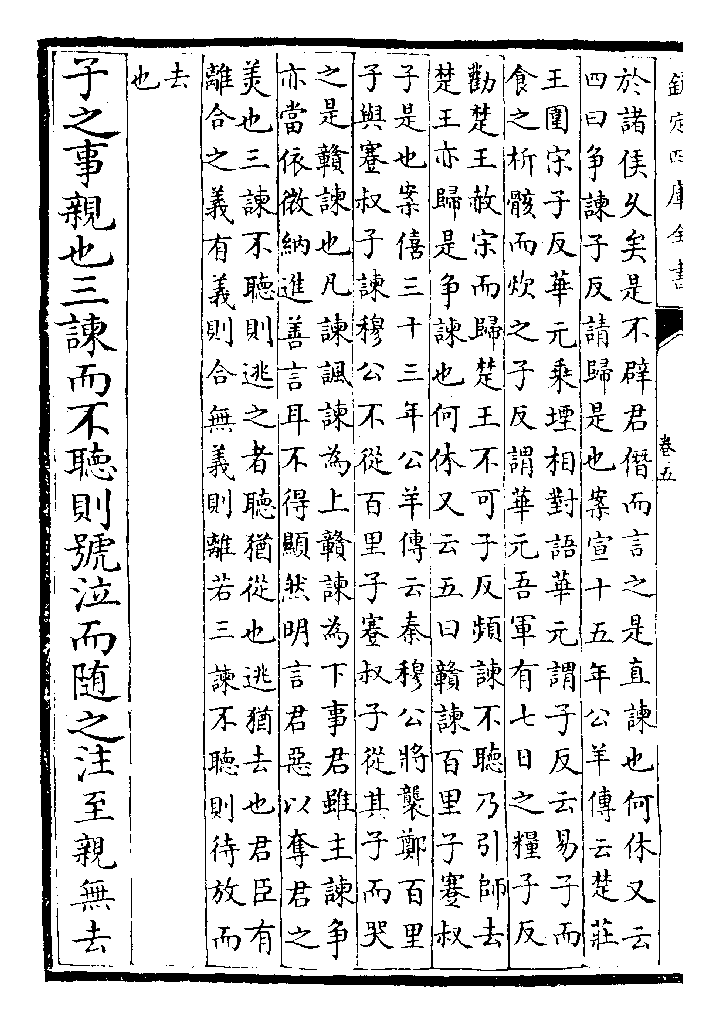 欽定四庫全書 卷五
於諸侯久矣是不辟君僭而言之是直諫也何休又云
四曰争諫子反請歸是也案宣十五年公羊傳云楚莊
王圍宋子反華元乗堙相對語華元謂子反云易子而
食之析骸而炊之子反謂華元吾軍有七日之糧子反
勸楚王赦宋而歸楚王不可子反頻諫不聽乃引師去
楚王亦歸是争諫也何休又云五曰贛諫百里子蹇叔
子是也案僖三十三年公羊傳云秦穆公將襲鄭百里
子與蹇叔子諫穆公不從百里子蹇叔子從其子而哭
之是贛諫也凡諫諷諫為上贛諫為下事君雖主諫争
亦當依微納進善言耳不得顯然明言君惡以奪君之
美也三諫不聽則逃之者聽猶從也逃猶去也君臣有
離合之義有義則合無義則離若三諫不聽則待放而
去
也
子之事親也三諫而不聽則號泣而随之注至親無去